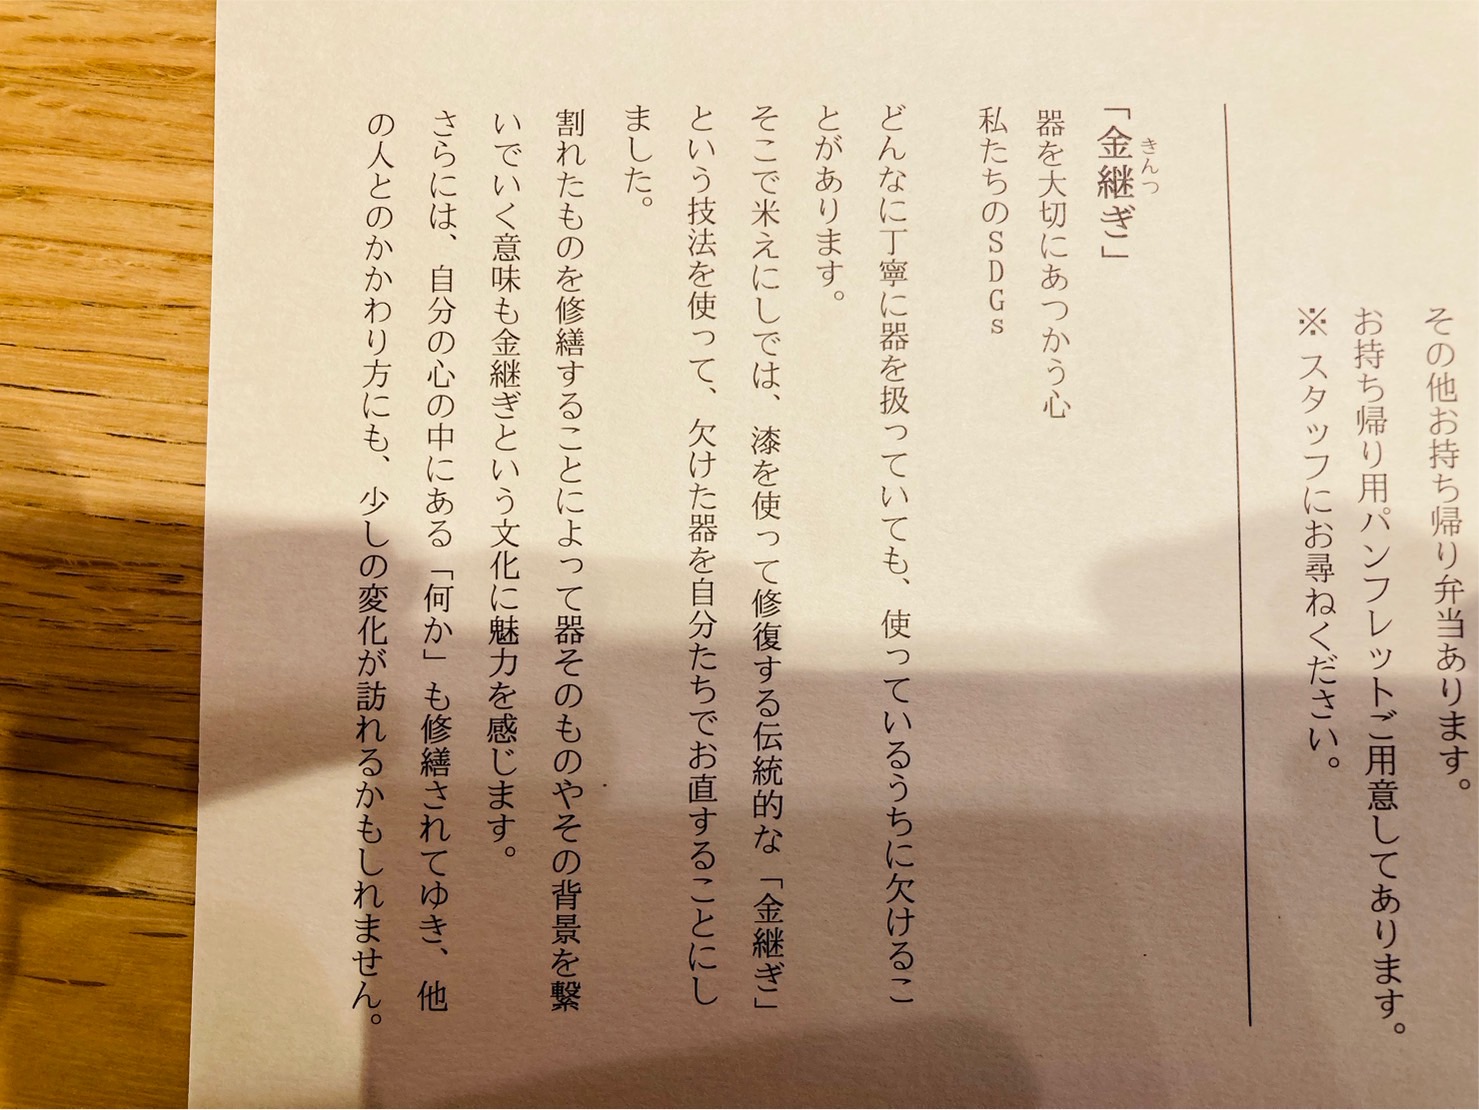 その他お持ち帰り弁当あります。
お持ち帰り用パンフレットご用意してあります。
※スタッフにお尋ねください。
「金継ぎ」
きんつ
器を大切にあつかう心
私たちのSDGs
どんなに丁寧に器を扱っていても、使っているうちに欠けるこ
とがあります。
そこで米えにしでは、漆を使って修復する伝統的な「金継ぎ」
という技法を使って、欠けた器を自分たちでお直することにし
ました。
割れたものを修繕することによって器そのものやその背景を繋
いでいく意味も金継ぎという文化に魅力を感じます。
さらには、自分の心の中にある「何か」も修繕されてゆき、他
の人とのかかわり方にも、少しの変化が訪れるかもしれません。